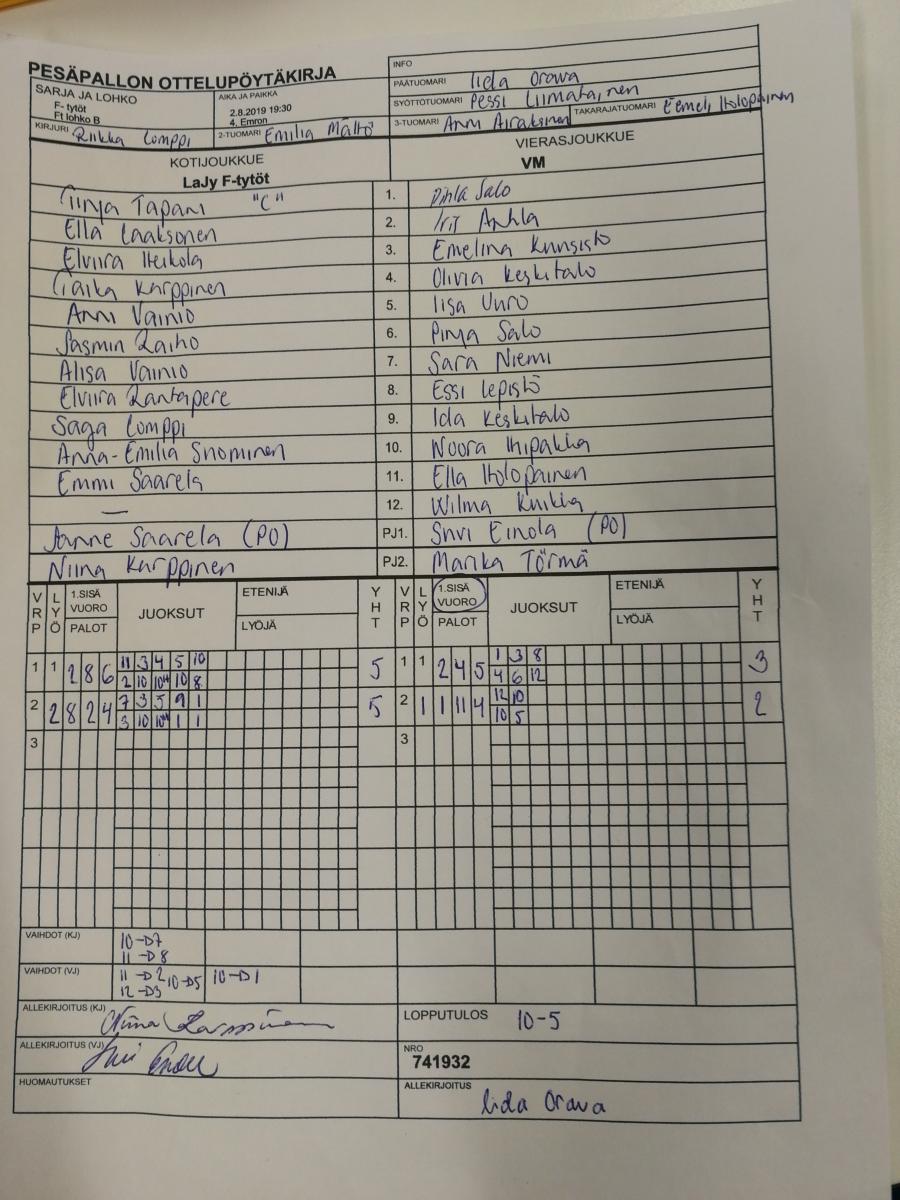 PESÄPALLON OTTELUPÖYTÄKIRJA
INFO
SARJA JA LOHKO
F- tytöt
Ft lohko B
AIKA JA PAIKKA
2.8.2019 19:30
4. Emron
PÄÄTUOMARI Iida Orava
SYÖTTÖTUOMARI Pessi Liimatainen
KIRJURI Riikka Lomppi
2-TUOMARI Emilia Mältö
3-TUOMARI Anni Airaksinen
TAKARAJATUOMARI Eemeli Holopainen
KOTIJOUKKUE
LaJy F-tytöt
VIERASJOUKKUE
VM
Tinja Tapani "C" 1. Pihla Salo
Ella Laaksonen 2. Iris Anhla
Elviira Heikola 3. Emelina Kunsisto
Taika Karppinen 4. Olivia Keskitalo
Anni Vainio 5. Iisa Uuro
Jasmin Raiho 6. Pinja Salo
Alisa Vainio 7. Sara Niemi
Elviira Rantapere 8. Essi Lepistö
Saga Lomppi 9. Ida Keskitalo
Anna-Emilia Snominen 10. Noora Ihipakka
Emmi Saarela 11. Ella Holopainen
— 12. Wilma Knikka
Janne Saarela (PO) PJ1. Suvi Einola (PO)
Niina Karppinen PJ2. Marika Törmä
VRP LYÖ 1.SISÄ VUORO PALOT JUOKSUT ETENIJÄ LYÖJÄ YHT
VRP LYÖ 1.SISÄ VUORO PALOT JUOKSUT ETENIJÄ LYÖJÄ YHT
1 1 2 8 6 11 3 4 5 10 5 1 1 2 4 5 1 3 8 3
2 10 10 10 8 4 6 12
2 2 8 2 4 7 3 5 9 1 5 2 1 1 11 4 12 10 2
3 10 10 1 1 10 5
3 3
VAIHDOT (KJ) 10-D7
11-D8
VAIHDOT (VJ) 11-D2 10-D5 10-D1
12-D3
ALLEKIRJOITUS (KJ) Niina Karppinen
LOPPUTULOS 10-5
ALLEKIRJOITUS (VJ)
NRO
741932
HUOMAUTUKSET
ALLEKIRJOITUS
Iida Orava